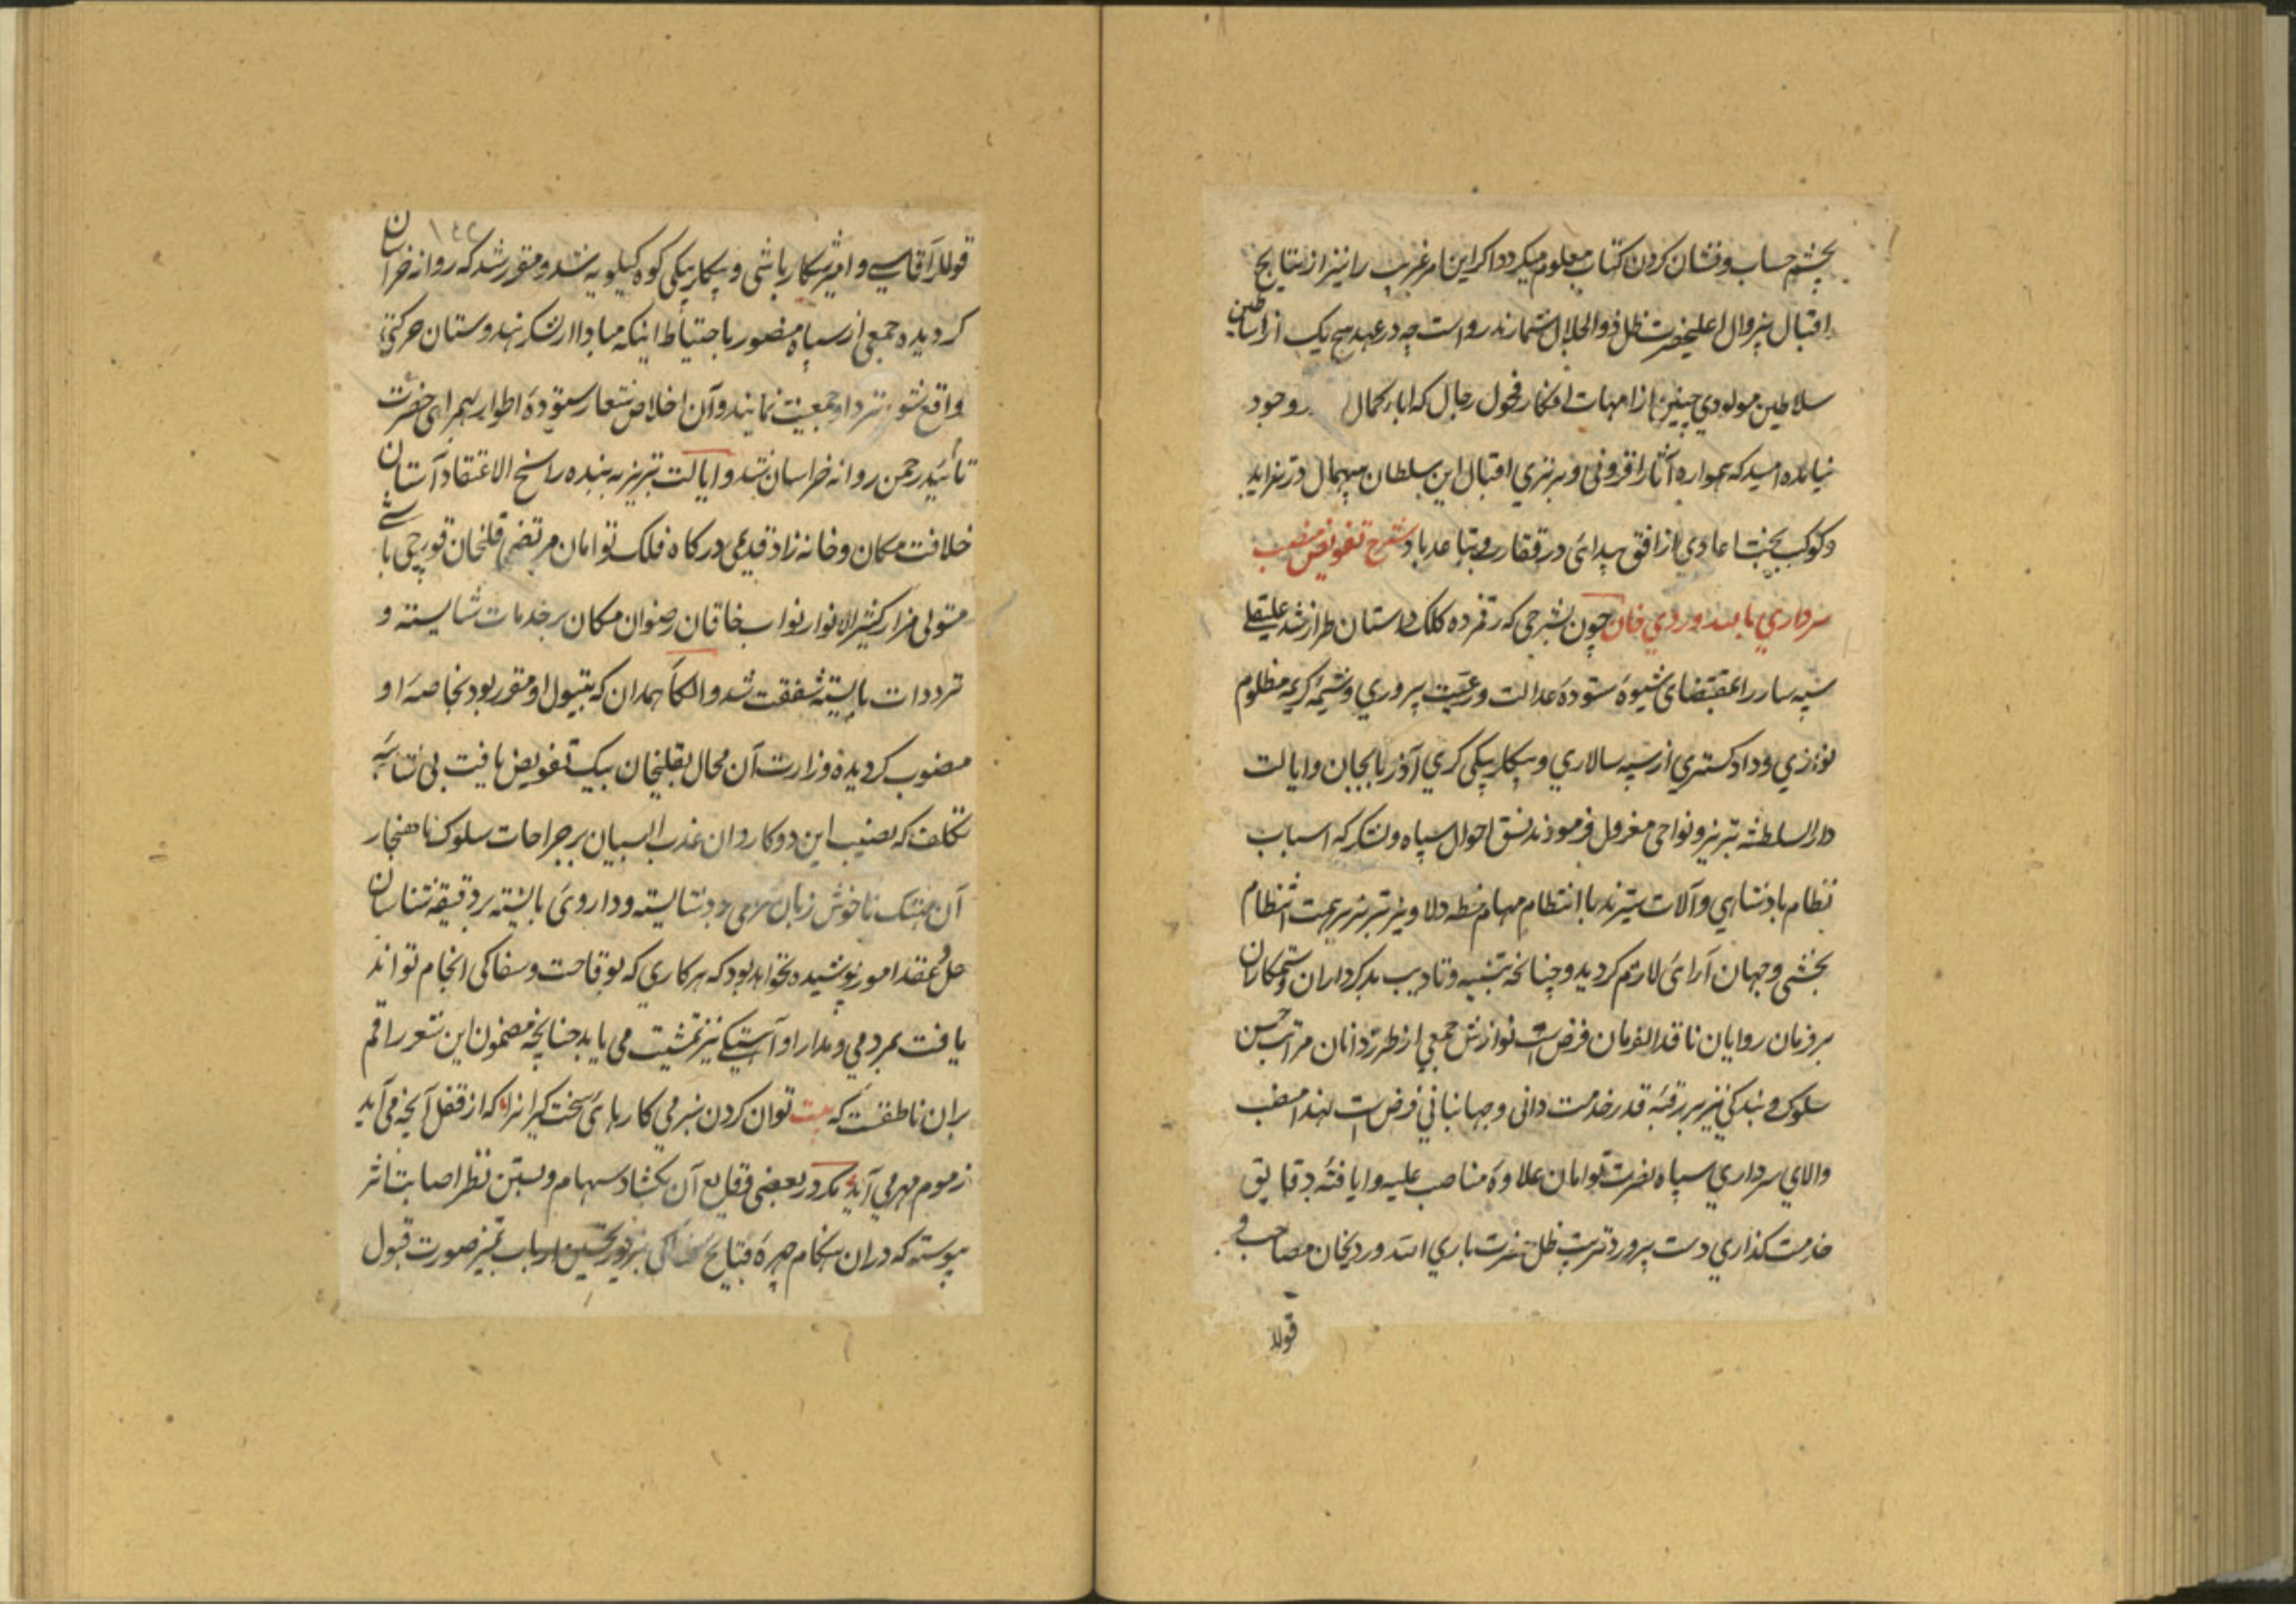 بچشم حساب و نشان کردن کتاب معلوم میکردد اکر این امر غریب را نیز از نتایج
اقبال بیزوال اعلیحضرت ظل ذوالجلال شمارند رواست چه در عهد هیچ یک از اساطین
سلاطین مولودی چنین از امهات افکار فحول رجال که اباء کمال وجود
نیامده امید که همواره آثار افزونی و برتری اقبال این سلطان بیهمال در تزاید
و کوکب بخت اعادی از افق پیدائی در قفا و تباعد باد شرح تفویض منصب
سرداری باللهوردی خان چون بشرحی که رقمزده کلک داستان طراز شد علیقلی
سپه سار را بمقتضای شیوه ستوده عدالت و رعیت پروری و شیمه کریمه مظلوم
نوازی و داد کستری از سپه سالاری و بیکلربیکی کری آذربایجان و ایالت
دار السلطنه تبریز و نواحی معزول فرمودند نسق احوال سپاه و لشکر که اسباب
نظام پادشاهی و آلات ستیزند با انتظام مهام خطه دلاویز تبریز بر همت انتظام
بخشی و جهان آرای لازم کردید و چنانچه تنبیه و تادیب بدکرداران و ستمکاران
بر فرمان روایان نافذ الفرمان فرض است نوازش جمعی از طرزدانان مراتب حسن
سلوک و بندکی نیز بر ذمه قدر خدمت دانی و جهانبانی فرض است لهذا منصب
والای سرداری سپاه نصرت توامان علاوه مناصب علیه و ایافته دقایق
خدمت کذاری دست پرورد تربیت ظل حضرت باری الله وردیخان مصاحب و
قوللر
۱۴۲
قوللر آقاسی و امیر شکار باشی و بیکلربیکی کوه کیلویه شد و مقرر شد که روانه خراسان
کردیده جمعی از سپاه منصور با احتیاط اینکه مبادا از لشکر هندوستان حرکتی
واقع شود نزد او جمعیت نمایند و آن اخلاص شعار ستوده اطوار بهمرای حضرت
تائید رحمن روانه خراسان شد و ایالت تبریز به بنده راسخ الاعتقاد آستان
خلافت مکان و خانه زاد قدیمی درکاه فلک توامان مرتضی قلیخان قورچی باشی
متولی مزار کثیر الانوار نواب خاقان رضوان مکان بر خدمات شایسته و
ترددات بایسته شفقت شد و الکاء همدان که بتیول او مقرر بود بخاصه او
منصوب کردیده وزارت آن محال بقلیخان بیک تفویض یافت بی شائبه
تکلف که نصیب این دو کاردان عذب البیان بر جراحات سلوک ناهنجار
آن خوش زبان مرهمی بود شایسته و داروی بایسته بر دقیقه شناسان
حل و عقد امور پوشیده نخواهد بود که هر کاری که بوقاحت و سفاکی انجام تواند
یافت بمردمی و مدارا و آهستکی نیز تمشیت می یابد چنانچه مضمون این شعر راقم
بران ناطقست که بیت توان کردن بنرمی کارهای سخت کیرانرا که از قفل آنچه می آید
ز موم مهر می آید مکر در بعضی وقایع آن بکشاد سهام و بستن نظر اصابت اثر
پیوسته که دران هنکام چهره قبایح سفاکی بزیور تحسین ارباب تمیز صورت قبول